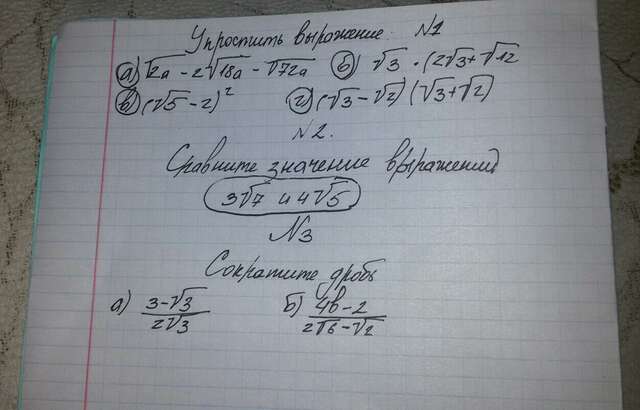 Упростить выражение. N1
а) √2a - 2√18a - √72a б) √3 · (2√3 + √12
в) (√5 - 2)² г) (√3 - √2) (√3 + √2)
N2.
Сравните значение выражений
3√7 и 4√5
N3
Сократите дробь
а) (3-√3)/(2√3) б) (4b-2)/(2√b-√2)